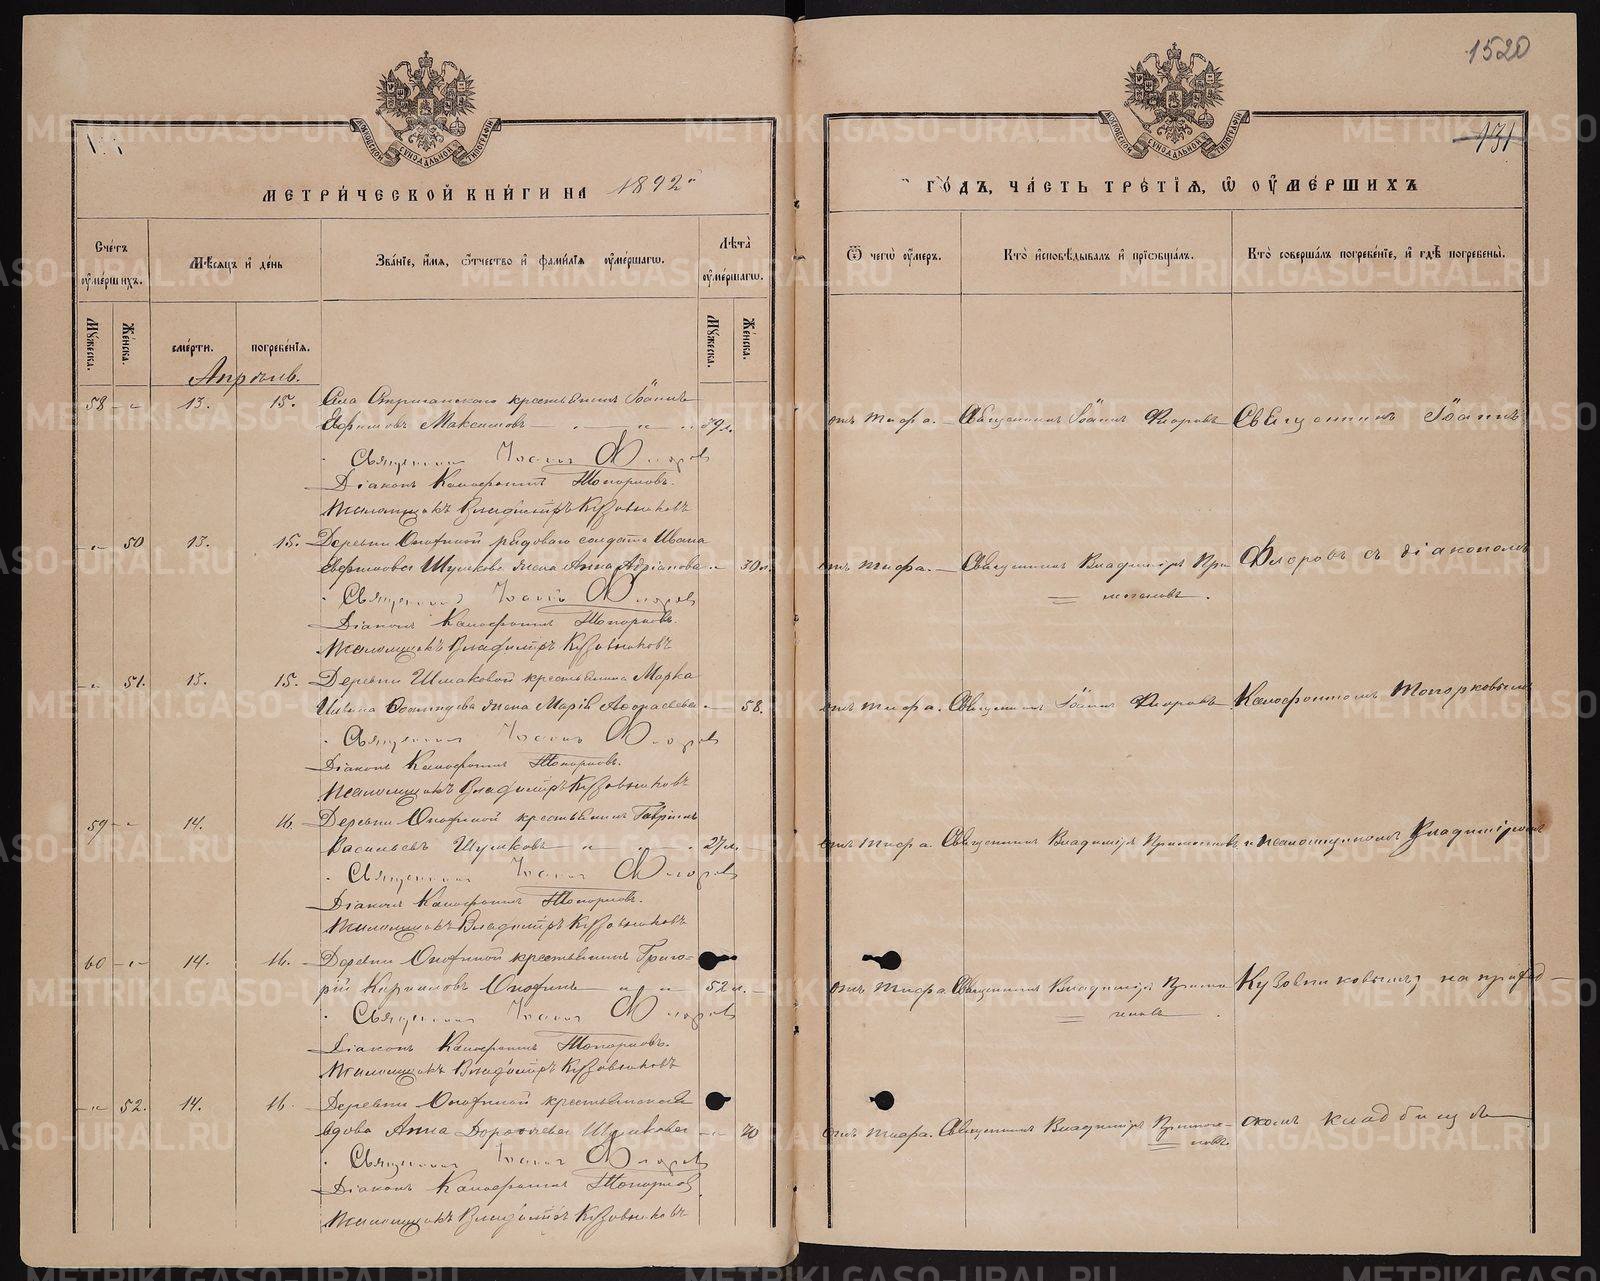 1520
131
МЕТРИЧЕСКОЙ КНИГИ НА 1892й
ГОДЪ, ЧАСТЬ ТРЕТІЯ, Ѡ ОУМЕРШИХЪ
Счетъ оумершихъ.
Мѣсяцъ и день
Званіе, имя, отчество и фамилія оумершагѡ.
Лѣта оумершагѡ.
Ѿ чегѡ оумеръ.
Кто исповѣдывалъ и пріобщалъ.
Кто совершалъ погребеніе, и гдѣ погребены.
Мужеска.
Женска.
смерти.
погребенія.
Мужеска.
Женска.
Апрѣль.
58 13. 15. Села крестьянинъ Іоаннъ
Ефимовъ Максимовъ 59 л. отъ тифа. Священникъ Іоаннъ Флоровъ Священникъ Іоаннъ
Священникъ Іоаннъ Флоровъ
Діаконъ Топорковъ.
Псаломщикъ Владиміръ Кузовниковъ
50 13. 15. Деревни рядоваго солдата Ивана
жена Анна Адріанова 30 л. отъ тифа. Священникъ Владиміръ Флоровъ съ діакономъ
Священникъ Іоаннъ Флоровъ
Діаконъ Топорковъ.
Псаломщикъ Владиміръ Кузовниковъ
51. 13. 15. Деревни Шмаковой крестьянина Марка
жена Марія 58. отъ тифа. Священникъ Іоаннъ Флоровъ Топорковымъ
Священникъ Іоаннъ Флоровъ
Діаконъ Топорковъ.
Псаломщикъ Владиміръ Кузовниковъ
59 14. 16. Деревни крестьянинъ Гавріилъ
Васильевъ 27 л. отъ тифа. Священникъ Владиміръ и псаломщикомъ Владиміромъ
Священникъ Іоаннъ Флоровъ
Діаконъ Топорковъ.
Псаломщикъ Владиміръ Кузовниковъ
60 14. 16. Деревни крестьянинъ Григо-
рій Кириловъ 52 л. отъ тифа Священникъ Владиміръ Кузовниковымъ, на приход-
Священникъ Іоаннъ Флоровъ
Діаконъ Топорковъ.
Псаломщикъ Владиміръ Кузовниковъ
52. 14. 16. Деревни крестьянская
вдова Анна 70 отъ тифа. Священникъ Владиміръ скомъ кладбищѣ
Священникъ Іоаннъ Флоровъ
Діаконъ Топорковъ
Псаломщикъ Владиміръ Кузовниковъ
METRIKI.GASO-URAL.RU